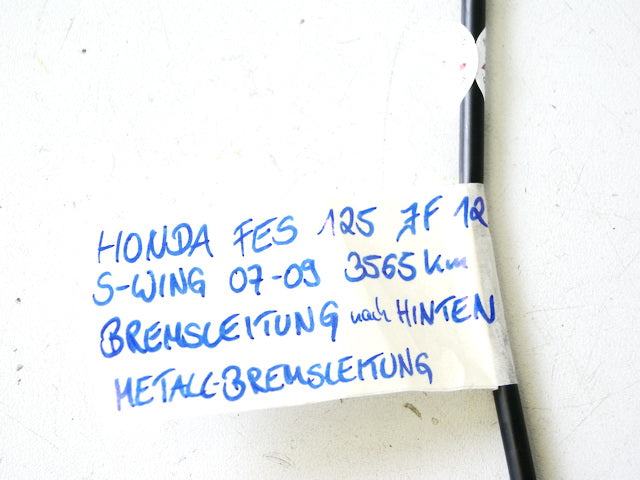 HONDA FES 125 JF 12
S-WING 07-09 3565 km
BREMSLEITUNG nach HINTEN
METALL-BREMSLEITUNG